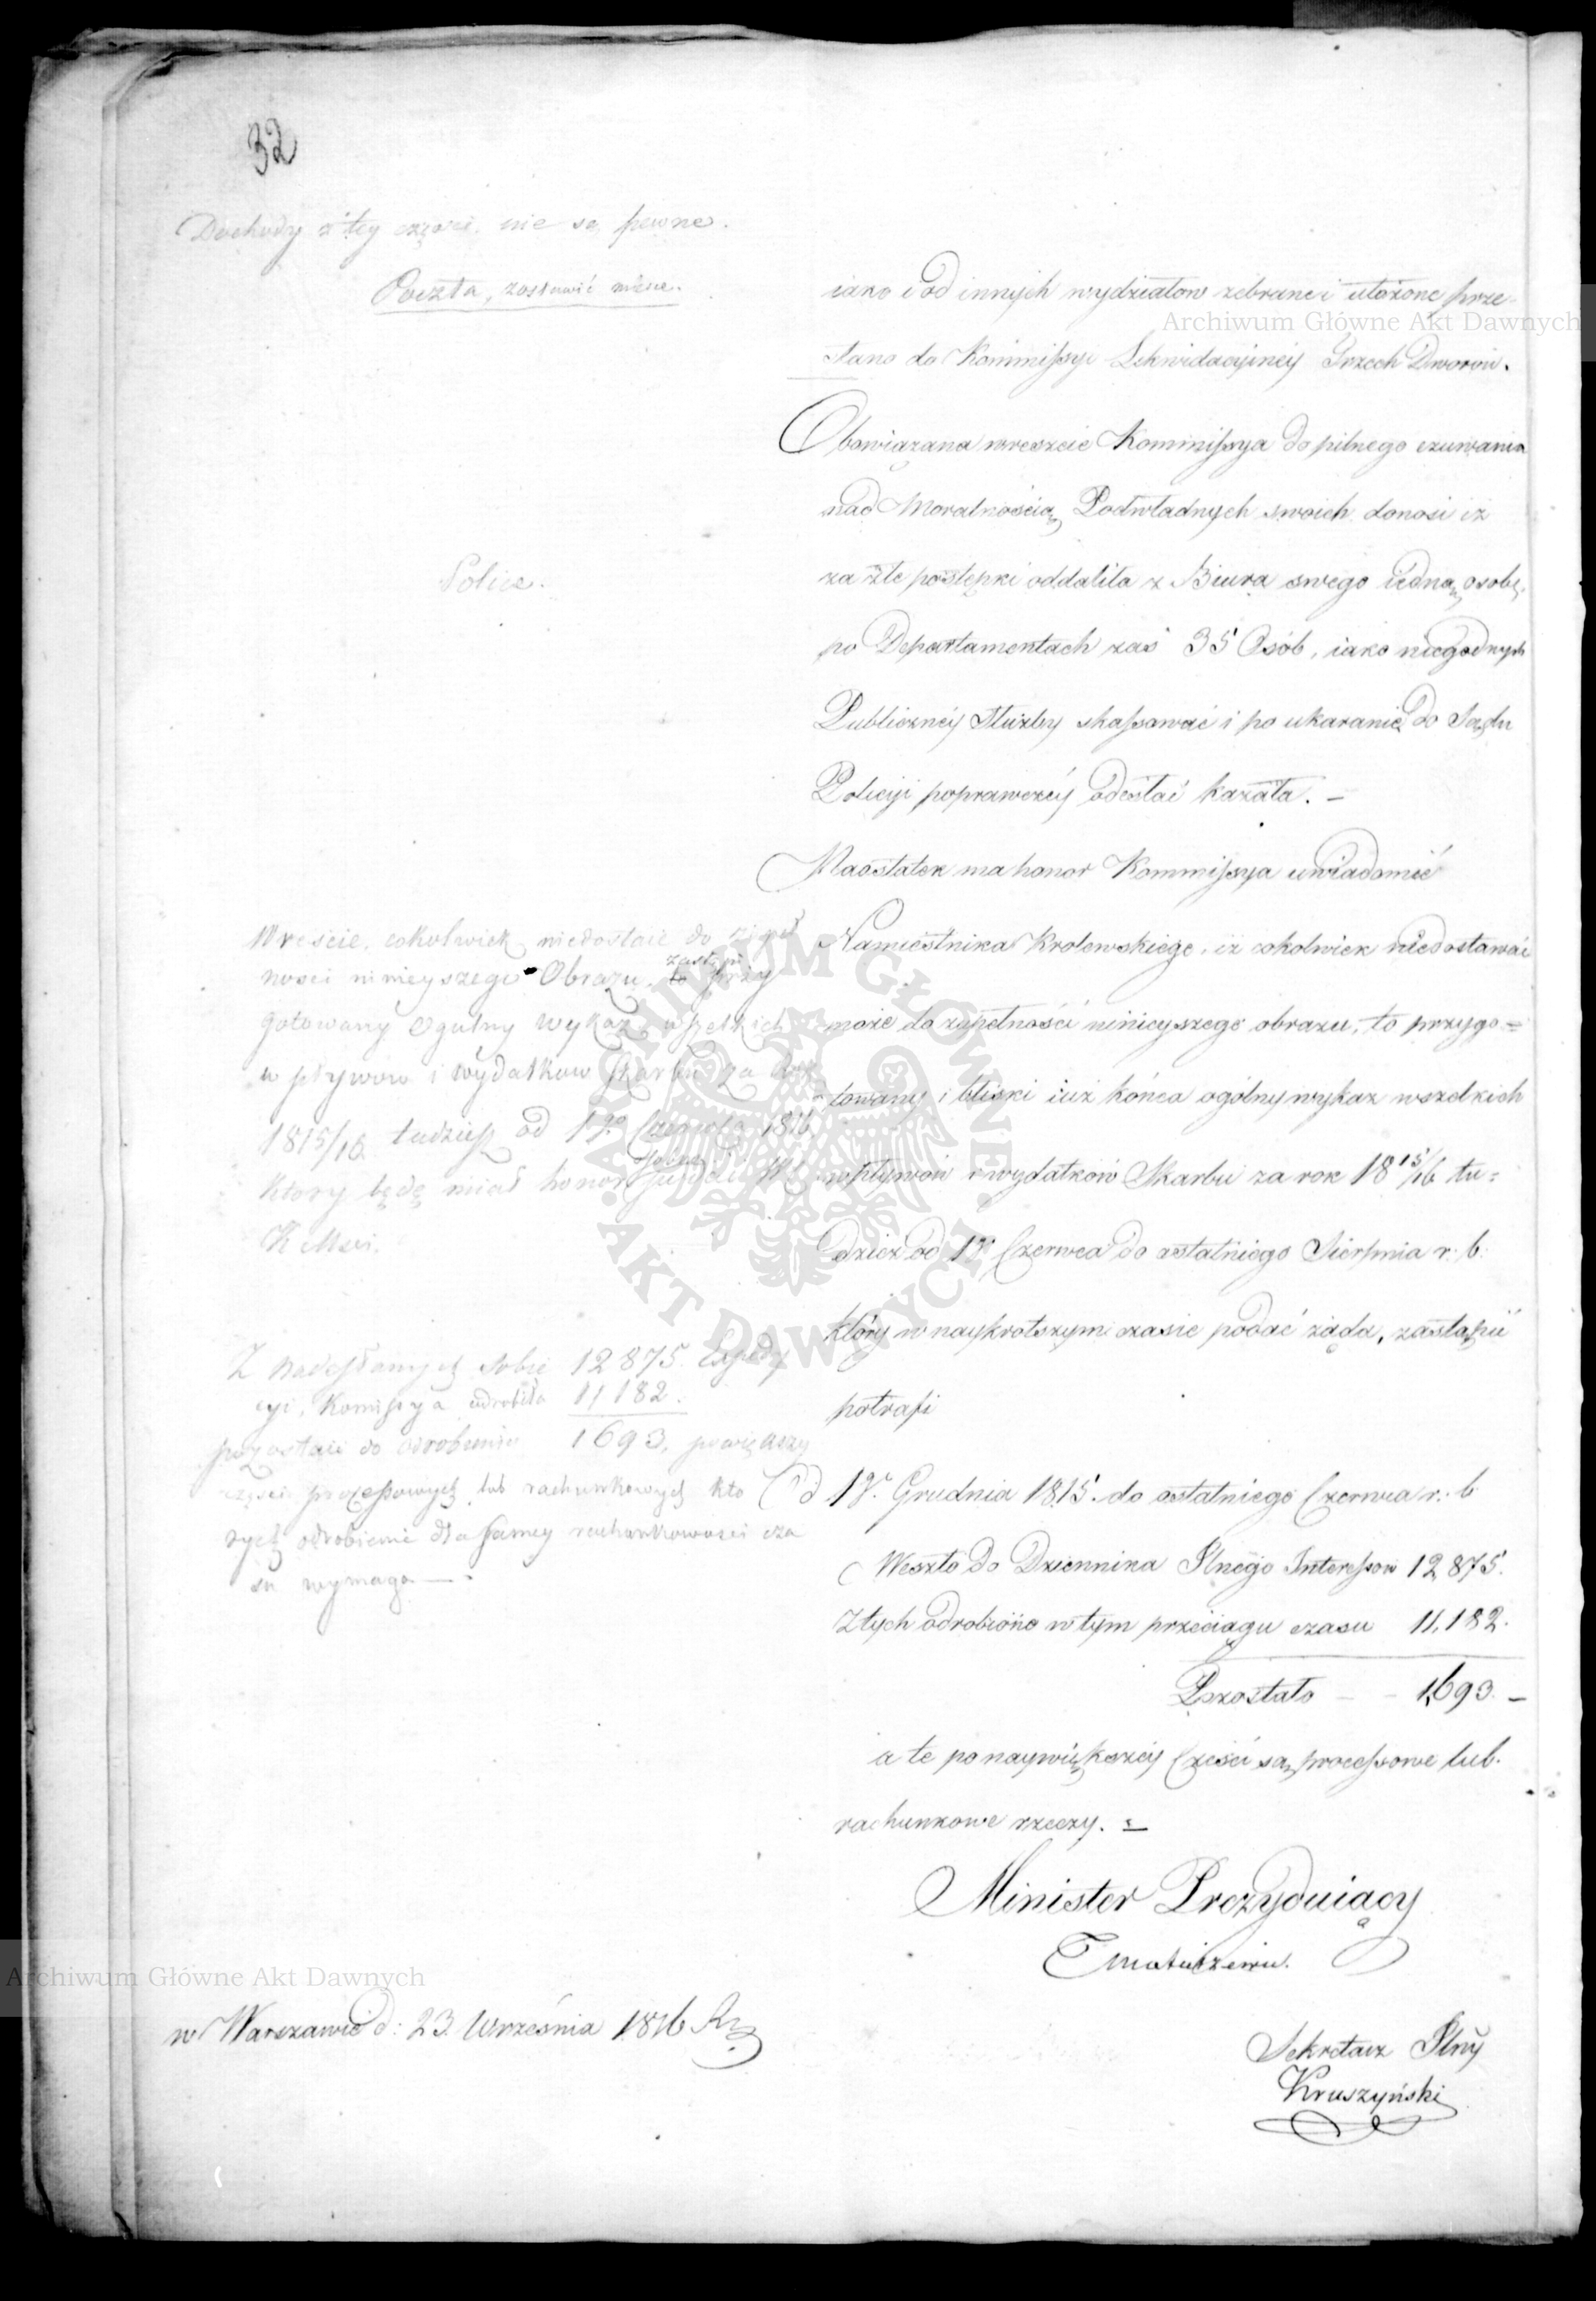 32
Dochody z tey części nie są pewne.
Poczta, zostawić
iako i od innych wydziałow zebrane i ułożone prze-
słano do Kommissyi Likwidacyiney Trzech Dworów.
Obowiązana wreszcie Kommissya do pilnego czuwania
nad Moralnością Podwładnych swoich donosi iż
za złe postępki oddaliła z Biura swego iedną osobę,
po Departamentach zaś 35 Osób, iako niegodnych
Publiczney Służby skassować i po ukaraniu do Sądu
Policyi poprawczey odesłać kazała. –
Police.
Naostatek ma honor Kommissya uwiadomić
Namiestnika Krolewskiego, iż cokolwiek niedostawać
może do zupełności ninieyszego obrazu, to przygo=
towany i bliski iuż końca ogólny wykaz wszelkich
wpływów i wydatków Skarbu za rok 1815/16 tu=
dzież od 1go Czerwca do ostatniego Sierpnia r. b.
który w naykrotszym czasie podać żąda, zastąpić
potrafi
Wreście, cokolwiek niedostaie do zupeł
ności ninieyszego Obrazu, to zastąpi przy
gotowany Ogulny Wykaz wszelkich
wpływow i wydatkow Skarbu za
1815/16 tudziesz od 1go Czerwca 1816
ktory będę miał honor W.
K Mci.
Z nadesłanych sobie 12875. Expedy
cyi, Komissya odrobiła 11182.
pozostaie do odrobienia 1693, po większy
części processowych lub rachunkowych kto
rych odrobienie dla samey rachunkowości cza
su wymaga —.
Od 1go Grudnia 1815. do ostatniego Czerwca r. b
Weszło do Dziennika Jlnego Interessow 12,875.
Z tych odrobiono w tym przeciągu czasu 11,182.
Pozostało – – 1,693. –
a te po naywiększey Części są processowe lub.
rachunkowe rzeczy. =
Minister Prezyduiący
T Matuszewic.
w Warszawie d: 23. Września 1816 Ru
Sekretarz Jlny
Kruszyński
Archiwum Główne Akt Dawnych
ARCHIWUM GŁÓWNE AKT DAWNYCH
Archiwum Główne Akt Dawnych